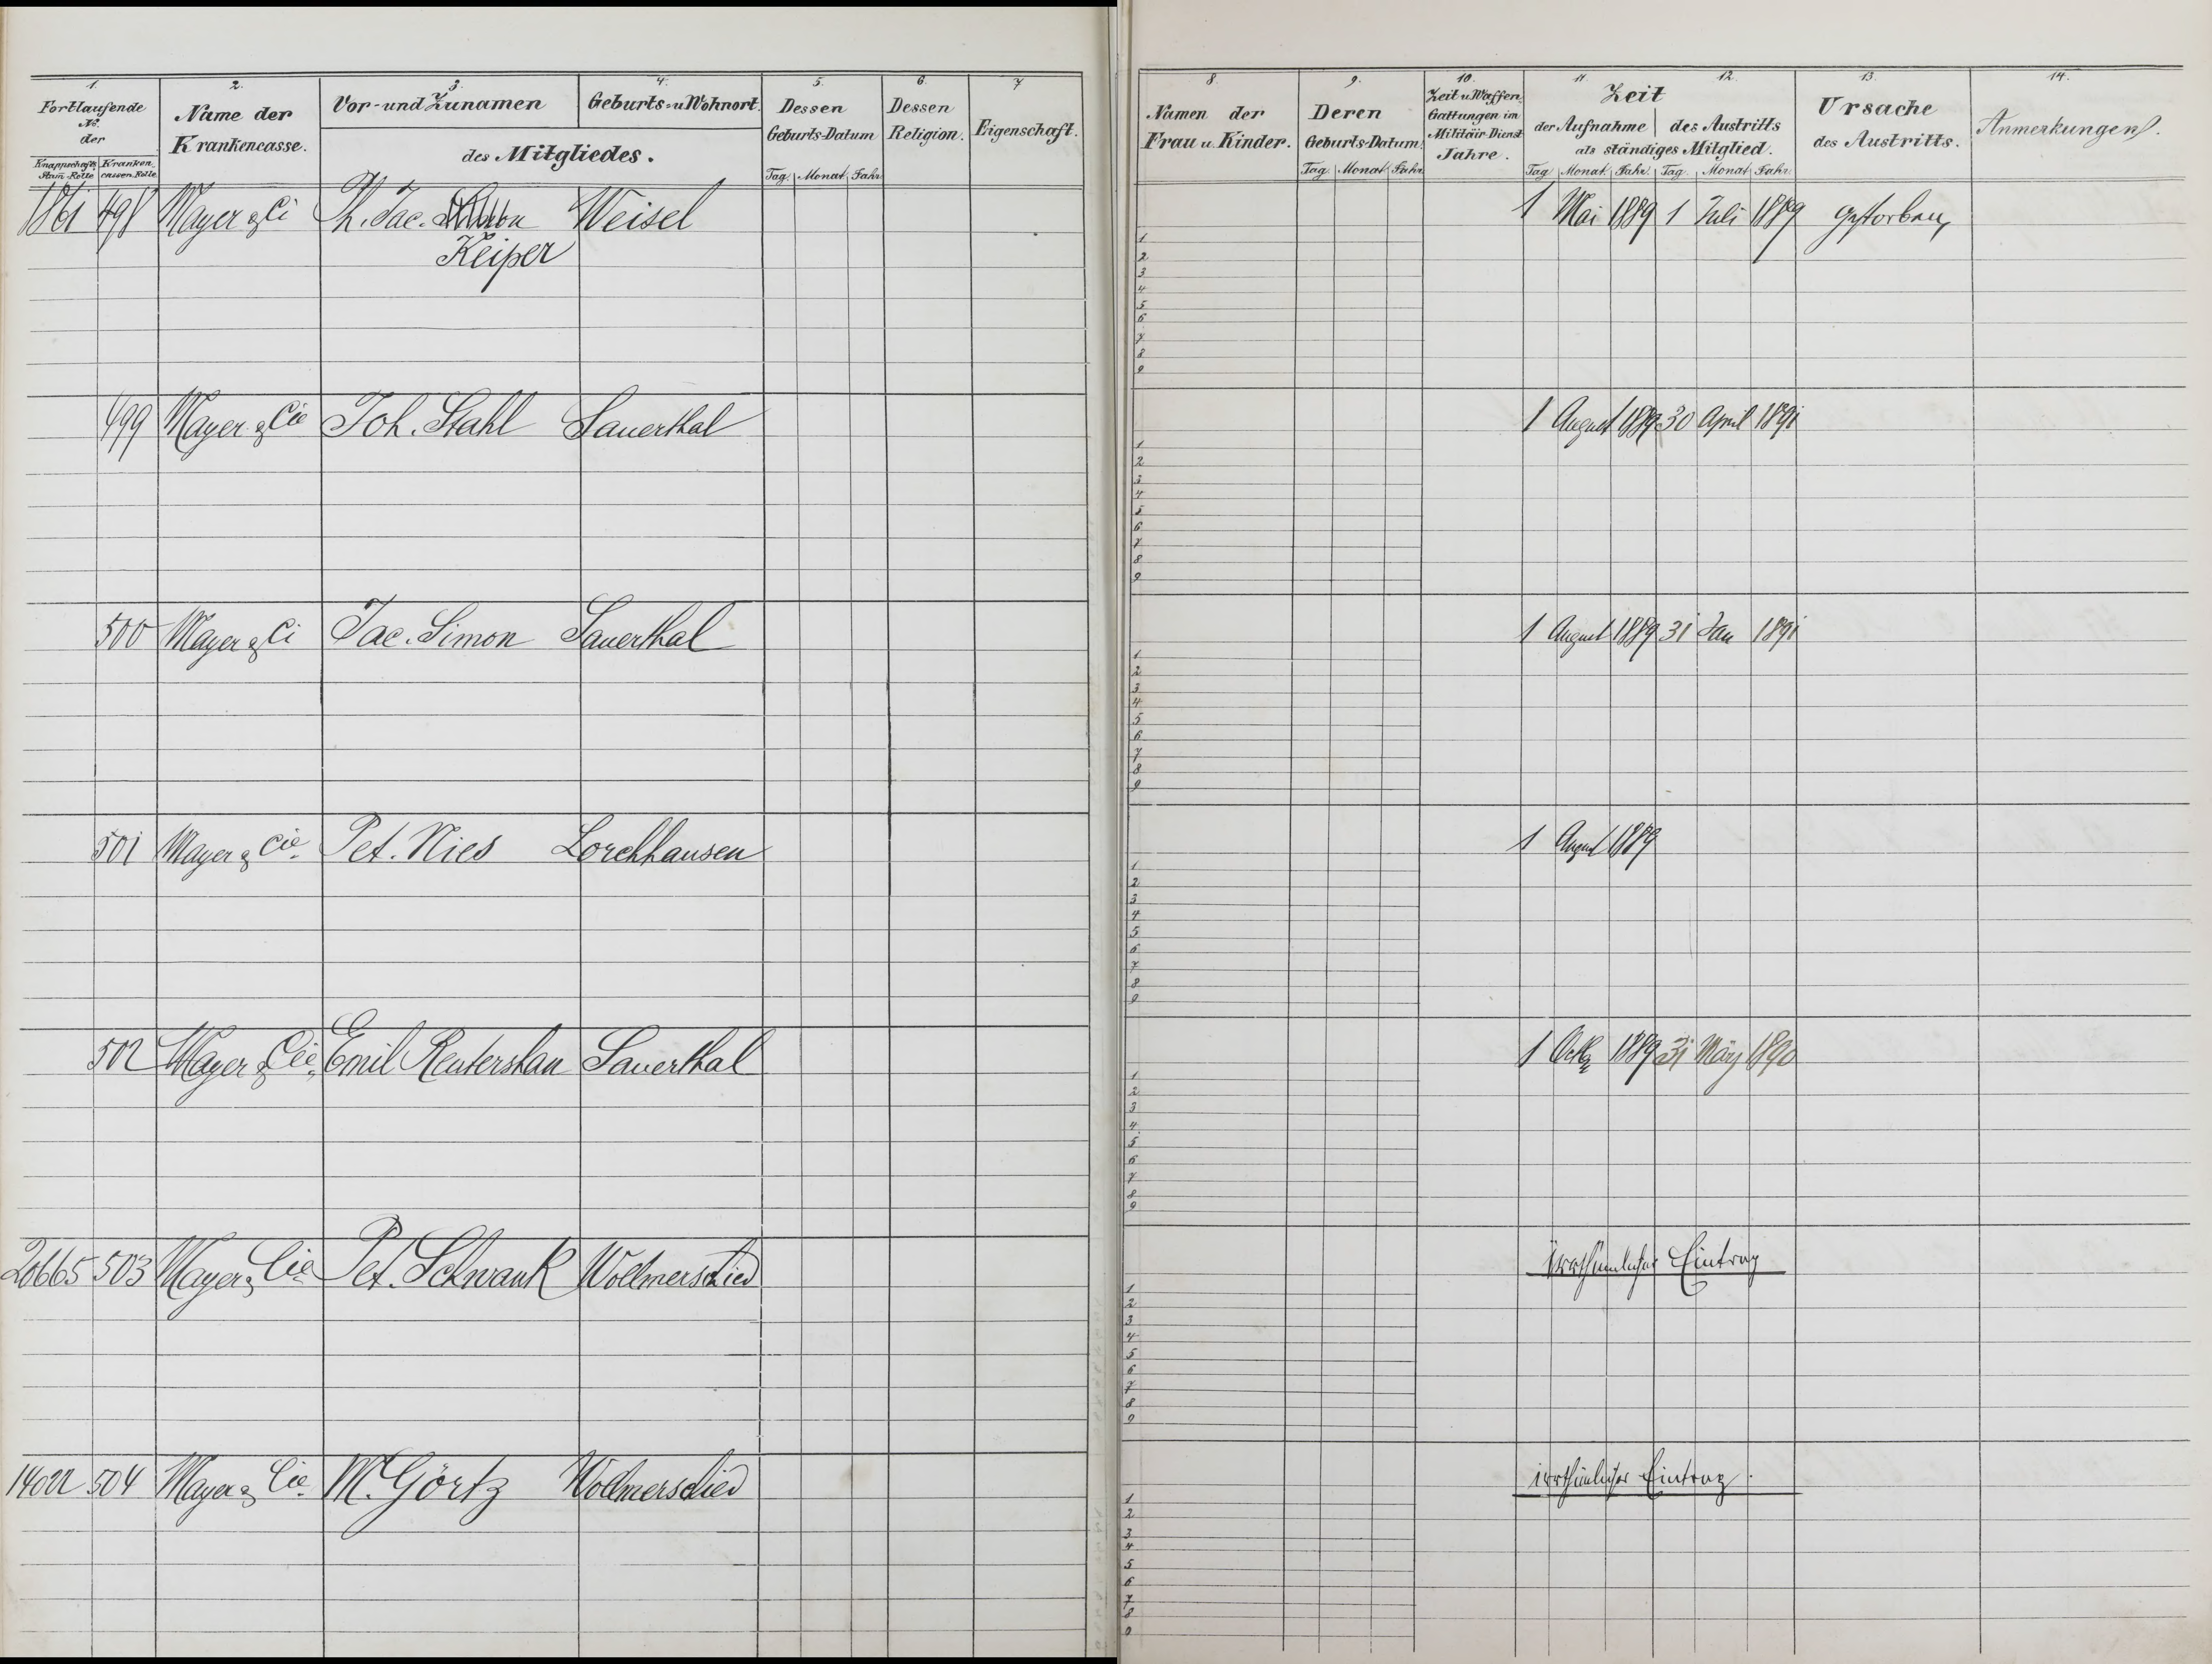 1. 2. 3. 4. 5. 6. 7
Fortlaufende № der
Knappschafts Stam-Rolle
Kranken cassen Rolle
Name der Krankencasse.
Vor- und Zunamen
Geburts- u Wohnort.
des Mitgliedes.
Dessen Geburts-Datum
Tag. Monat. Jahr.
Dessen Religion.
Eigenschaft.
8. 9. 10. 11. 12. 13. 14.
Namen der Frau u. Kinder.
Deren Geburts-Datum.
Tag. Monat. Jahr.
Zeit u Waffen Gattungen im Militair-Dienst Jahre.
Zeit
der Aufnahme des Austritts
als ständiges Mitglied.
Tag Monat. Jahr. Tag. Monat. Jahr.
Ursache des Austritts.
Anmerkungen.
1861 498 Mayer & Ci Ph. Jac. Weisel 1 Mai 1889 1 Juli 1889 gestorben
Keiper
1
2
3
4
5
6
7
8
9
499 Mayer & Cie Joh. Stahl Sauerthal 1 August 1889 30 April 1891
1
2
3
4
5
6
7
8
9
500 Mayer & Ci Jac. Simon Sauerthal 1 August 1889 31 Jan 1891
1
2
3
4
5
6
7
8
9
501 Mayer & Cie. Pet. Nies Lorchhausen 1 August 1889
1
2
3
4
5
6
7
8
9
502 Mayer & Cie. Emil Reutershan Sauerthal 1 1889 31 März 1890
1
2
3
4
5
6
7
8
9
20665 503 Mayer & Cie Pet. Schwank Wollmerschied irrthümlicher Eintrag
1
2
3
4
5
6
7
8
9
14022 504 Mayer & Cie. M. Görtz Wollmerschied irrthümlicher Eintrag.
1
2
3
4
5
6
7
8
9